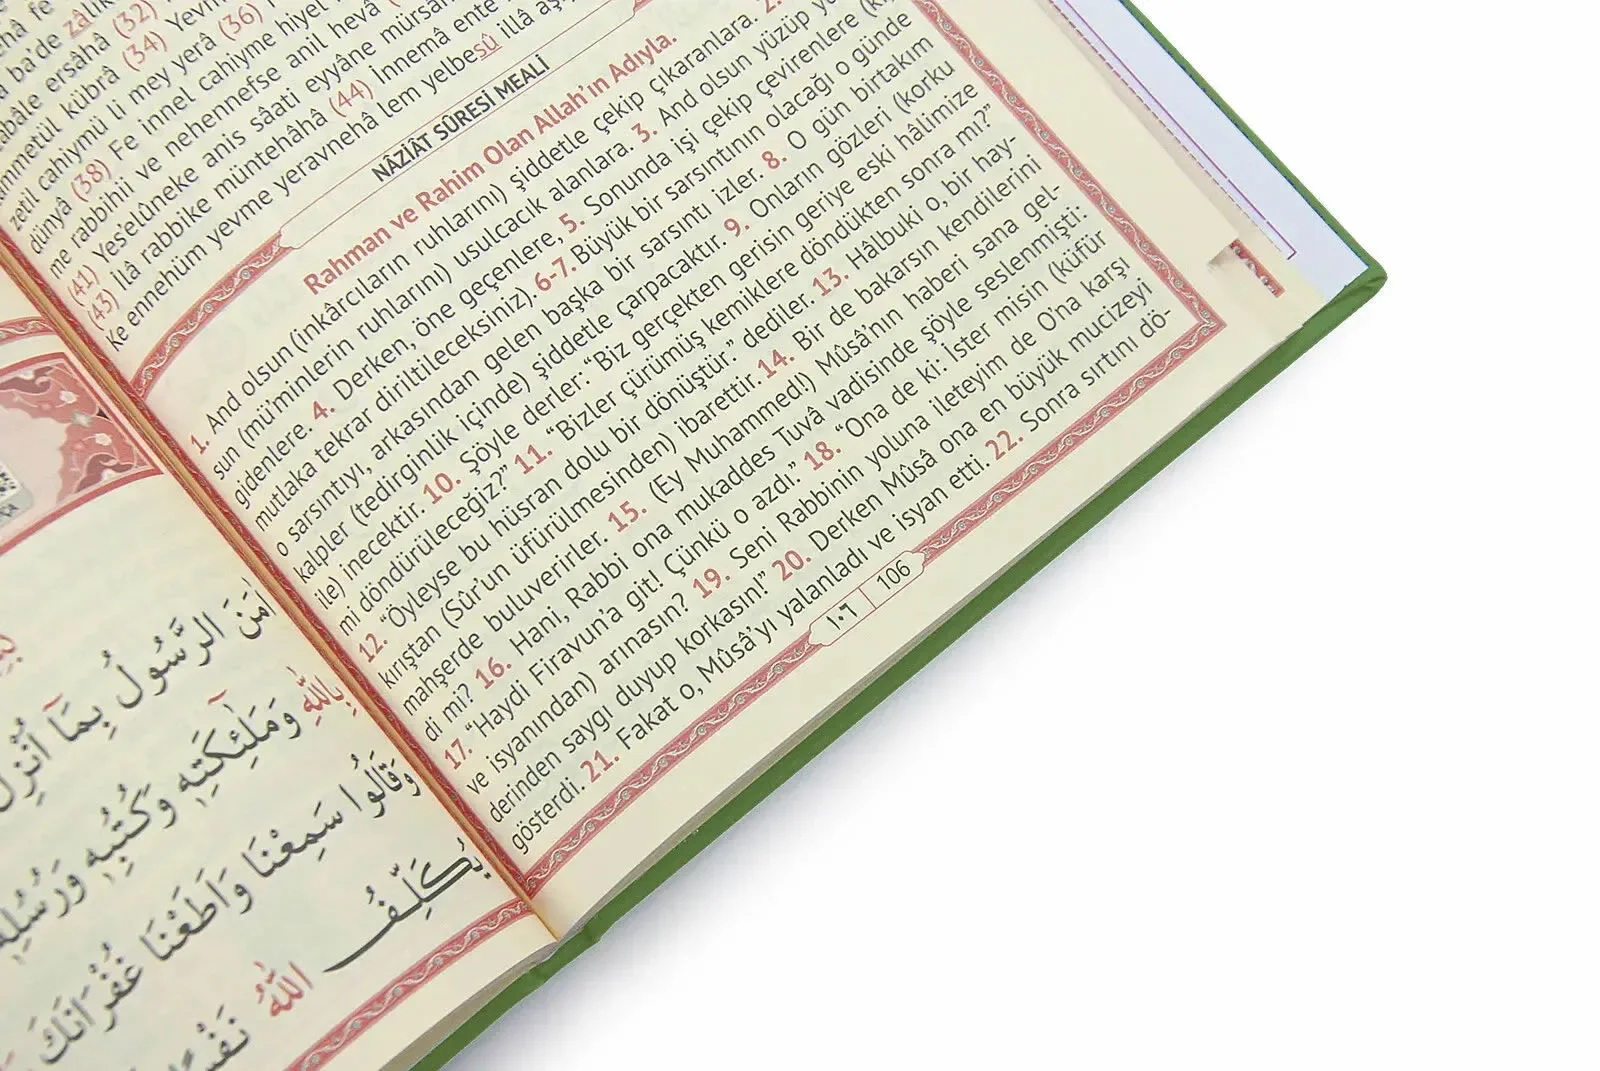 ba'de
ersâhâ (32)
kübrâ (34)
cahiymü li mey yerâ (36)
dünyâ (38) Fe innel cahiyme hiyel
me rabbihi ve nehennefse anil hevâ
(41) Yeselûneke anis sâati eyyâne
(43) İlâ rabbike müntehâhâ (44) İnnemâ ente
Ke ennehüm yevme yeravnehâ lem yelbesû illâ
NÂZİÂT SÛRESİ MEALİ
Rahman ve Rahim Olan Allah'ın Adıyla.
1. And olsun (inkârcıların ruhlarını) şiddetle çekip çıkaranlara. 2.
sun (mü'minlerin ruhlarını) usulcacık alanlara. 3. And olsun yüzüp
gidenlere. 4. Derken, öne geçenlere, 5. Sonunda işi çekip çevirenlere (ki,
mutlaka tekrar diriltileceksiniz). 6-7. Büyük bir sarsıntının olacağı o günde
o sarsıntıyı, arkasından gelen başka bir sarsıntı izler. 8. O gün birtakım
kalpler (tedirginlik içinde) şiddetle çarpacaktır. 9. Onların gözleri (korku
ile) inecektir. 10. Şöyle derler: "Biz gerçekten gerisin geriye eski hâlimize
mi döndürüleceğiz?" 11. "Bizler çürümüş kemiklere döndükten sonra mı?"
12. "Öyleyse bu hüsran dolu bir dönüştür." dediler. 13. Hâlbuki o, bir hay-
kırıştan (Sûr'un üfürülmesinden) ibarettir. 14. Bir de bakarsın kendilerini
mahşerde buluverirler. 15. (Ey Muhammed!) Mûsâ'nın haberi sana gel-
di mi? 16. Hani, Rabbi ona mukaddes Tuvâ vadisinde şöyle seslenmişti:
17. "Haydi Firavun'a git! Çünkü o azdı." 18. "Ona de ki: İster misin (küfür
ve isyanından) arınasın? 19. Seni Rabbinin yoluna ileteyim de O'na karşı
derinden saygı duyup korkasın!" 20. Derken Mûsâ ona en büyük mucizeyi
gösterdi. 21. Fakat o, Mûsâ'yı yalanladı ve isyan etti. 22. Sonra sırtını dö-
١٠٦ | 106
اٰمَنَ الرَّسُولُ بِمَٓا اُنْزِلَ
بِاللّٰهِ وَمَلٰٓئِكَتِهٖ وَكُتُبِهٖ وَرُسُلِهٖ
وَقَالُوا سَمِعْنَا وَاَطَعْنَا غُفْرَانَكَ
يُكَلِّفُ اللّٰهُ نَفْسًا